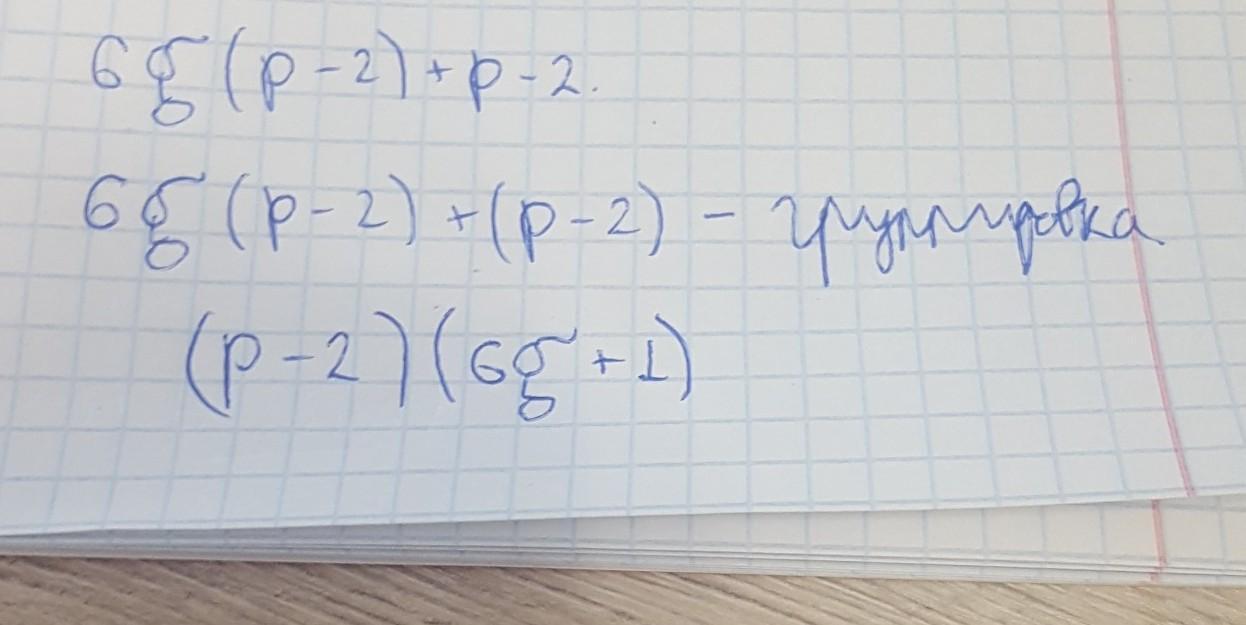 6g(p-2)+p-2.
6g(p-2)+(p-2) - группировка
(p-2)(6g+1)